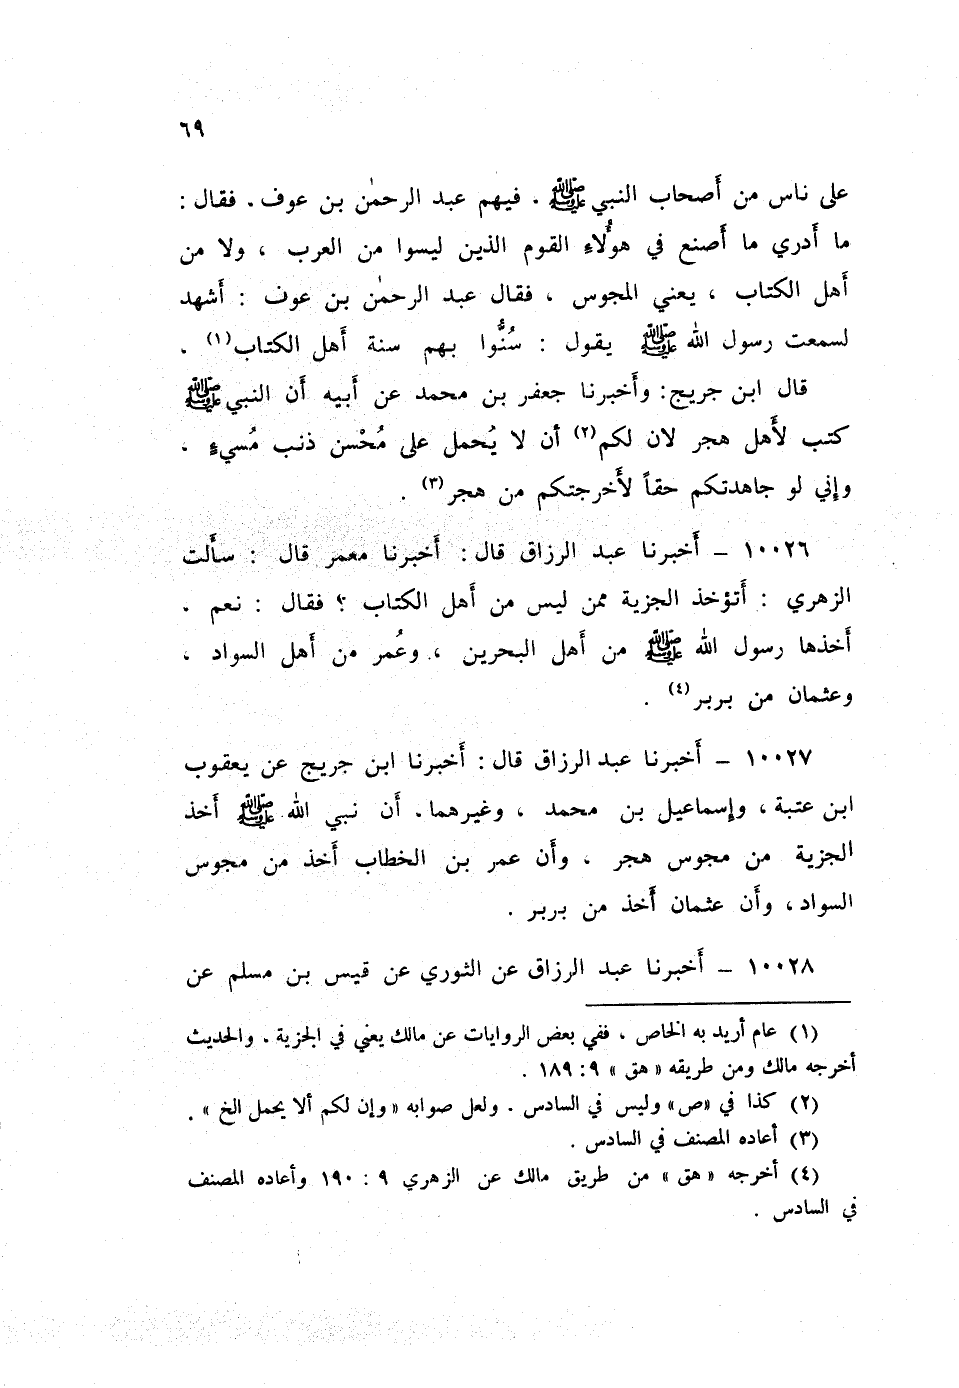 ٦٩
على ناس من أَصحاب النبي ﷺ . فيهم عبد الرحمٰن بن عوف . فقال :
ما أَدري ما أَصنع في هؤُلاءِ القوم الذين ليسوا من العرب ، ولا من
أَهل الكتاب ، يعني المجوس ، فقال عبد الرحمٰن بن عوف : أَشهد
لسمعت رسول الله ﷺ يقول : سُنُّوا بهم سنة أَهل الكتاب(١) .
قال ابن جريج : وأَخبرنا جعفر بن محمد عن أَبيه أَن النبي ﷺ
كتب لأَهل هجر لان لكم(٢) أن لا يُحمل على مُحْسن ذنب مُسيءٍ ،
وإني لو جاهدتكم حقاً لأَخرجتكم من هجر(٣) .
١٠٠٢٦ – أَخبرنا عبد الرزاق قال : أَخبرنا معمر قال : سأَلت
الزهري : أَتؤخذ الجزية ممن ليس من أَهل الكتاب ؟ فقال : نعم .
أَخذها رسول الله ﷺ من أَهل البحرين ، وعُمر من أَهل السواد ،
وعثمان من بربر(٤) .
١٠٠٢٧ – أَخبرنا عبد الرزاق قال : أَخبرنا ابن جريج عن يعقوب
ابن عتبة ، وإسماعيل بن محمد ، وغيرهما . أَن نبي الله ﷺ أَخذ
الجزية من مجوس هجر ، وأَن عمر بن الخطاب أَخذ من مجوس
السواد ، وأَن عثمان أَخذ من بربر .
١٠٠٢٨ – أَخبرنا عبد الرزاق عن الثوري عن قيس بن مسلم عن
(١) عام أريد به الخاص ، ففي بعض الروايات عن مالك يعني في الجزية . والحديث
أخرجه مالك ومن طريقه « هق » ٩ : ١٨٩ .
(٢) كذا في «ص» وليس في السادس . ولعل صوابه « وإن لكم ألا يحمل الخ » .
(٣) أعاده المصنف في السادس .
(٤) أخرجه « هق » من طريق مالك عن الزهري ٩ : ١٩٠ وأعاده المصنف
في السادس .